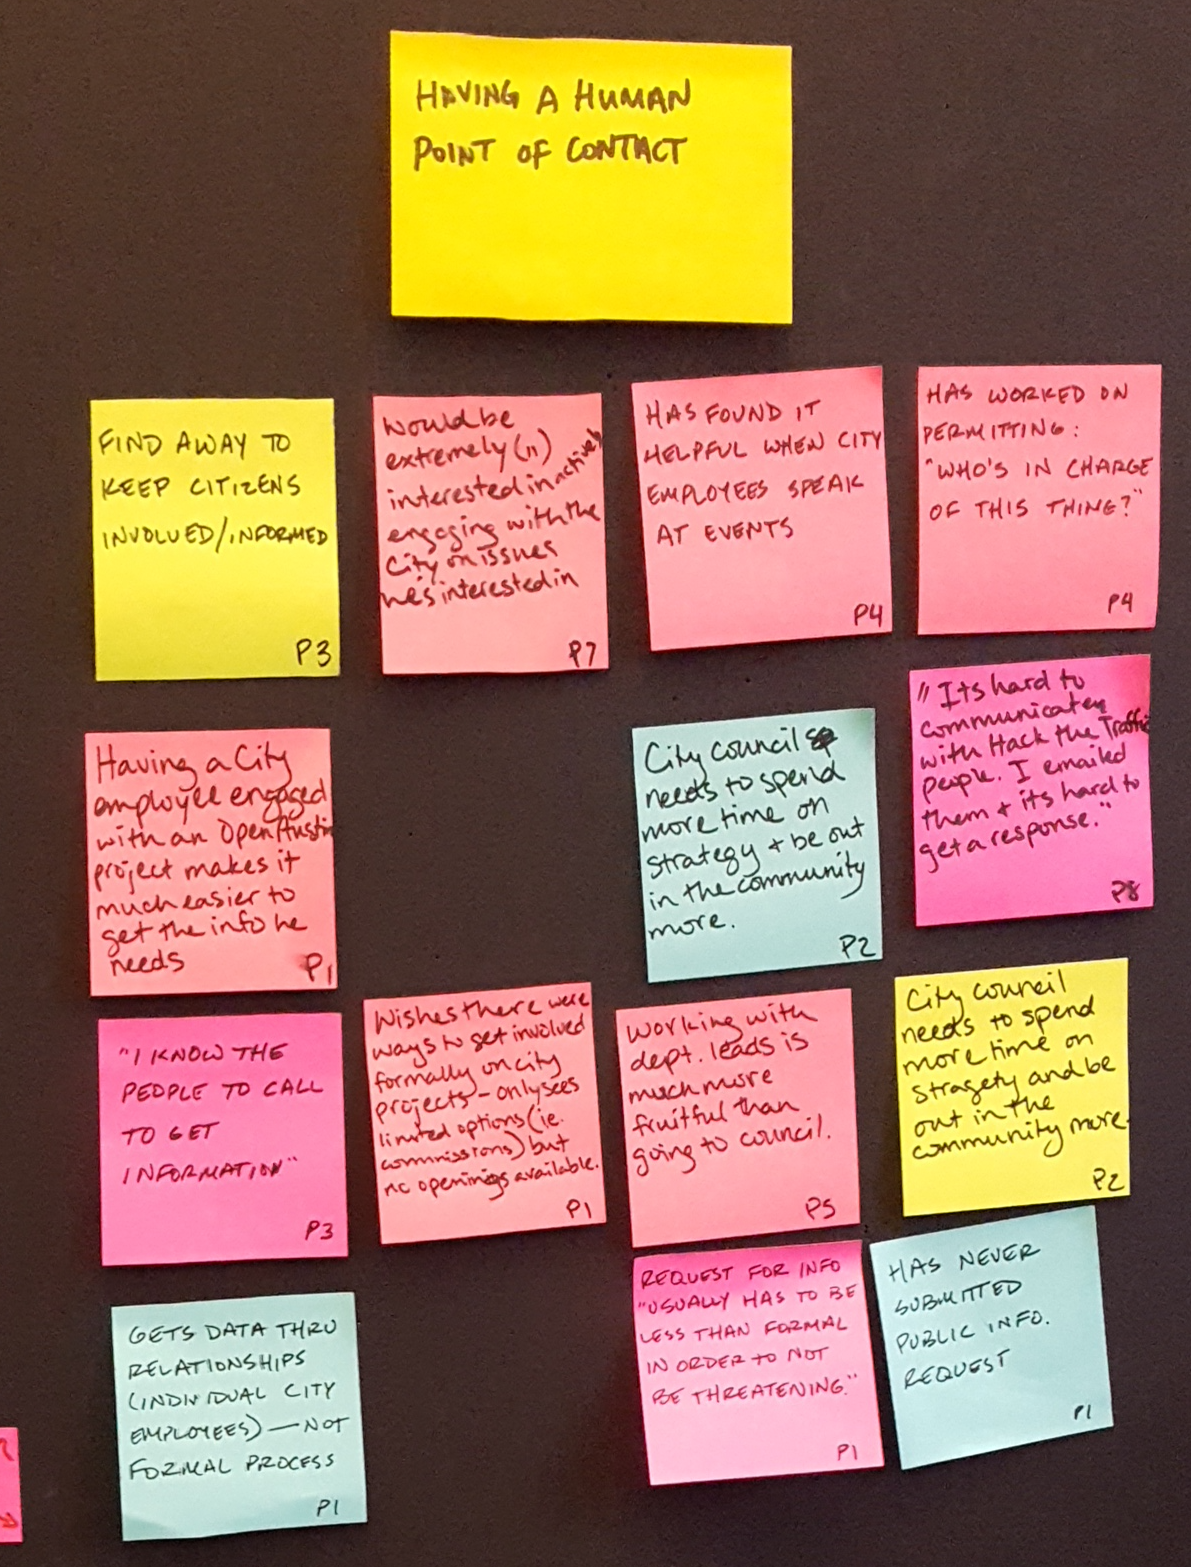 HAVING A HUMAN
POINT OF CONTACT
FIND A WAY TO
KEEP CITIZENS
INVOLVED/INFORMED
P3
Would be
extremely (11)
interested in actively
engaging with the
City on issues
he's interested in
P7
HAS FOUND IT
HELPFUL WHEN CITY
EMPLOYEES SPEAK
AT EVENTS
P4
HAS WORKED ON
PERMITTING:
"WHO'S IN CHARGE
OF THIS THING?"
P4
Having a City
employee engaged
with an Open Austin
project makes it
much easier to
get the info he
needs
P1
City council
needs to spend
more time on
strategy + be out
in the community
more.
P2
"Its hard to
communicate
with Hack the Traffic
people. I emailed
them + its hard to
get a response."
P8
"I KNOW THE
PEOPLE TO CALL
TO GET
INFORMATION"
P3
Wishes there were
ways to get involved
formally on city
projects - only sees
limited options (ie.
commissions) but
no openings available.
P1
Working with
dept. leads is
much more
fruitful than
going to council.
P5
City council
needs to spend
more time on
stragety and be
out in the
community more.
P2
GETS DATA THRU
RELATIONSHIPS
(INDIVIDUAL CITY
EMPLOYEES) — NOT
FORMAL PROCESS
P1
REQUEST FOR INFO
"USUALLY HAS TO BE
LESS THAN FORMAL
IN ORDER TO NOT
BE THREATENING."
P1
HAS NEVER
SUBMITTED
PUBLIC INFO.
REQUEST
P1